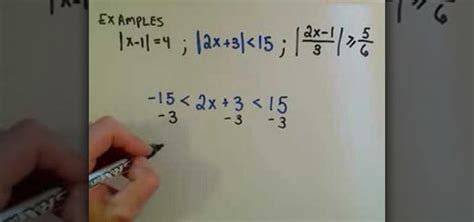 EXAMPLES
|x-1|=4 ; |2x+3|<15 ; |2x-1/3|⩾5/6
-15 < 2x+3 < 15
-3 -3 -3